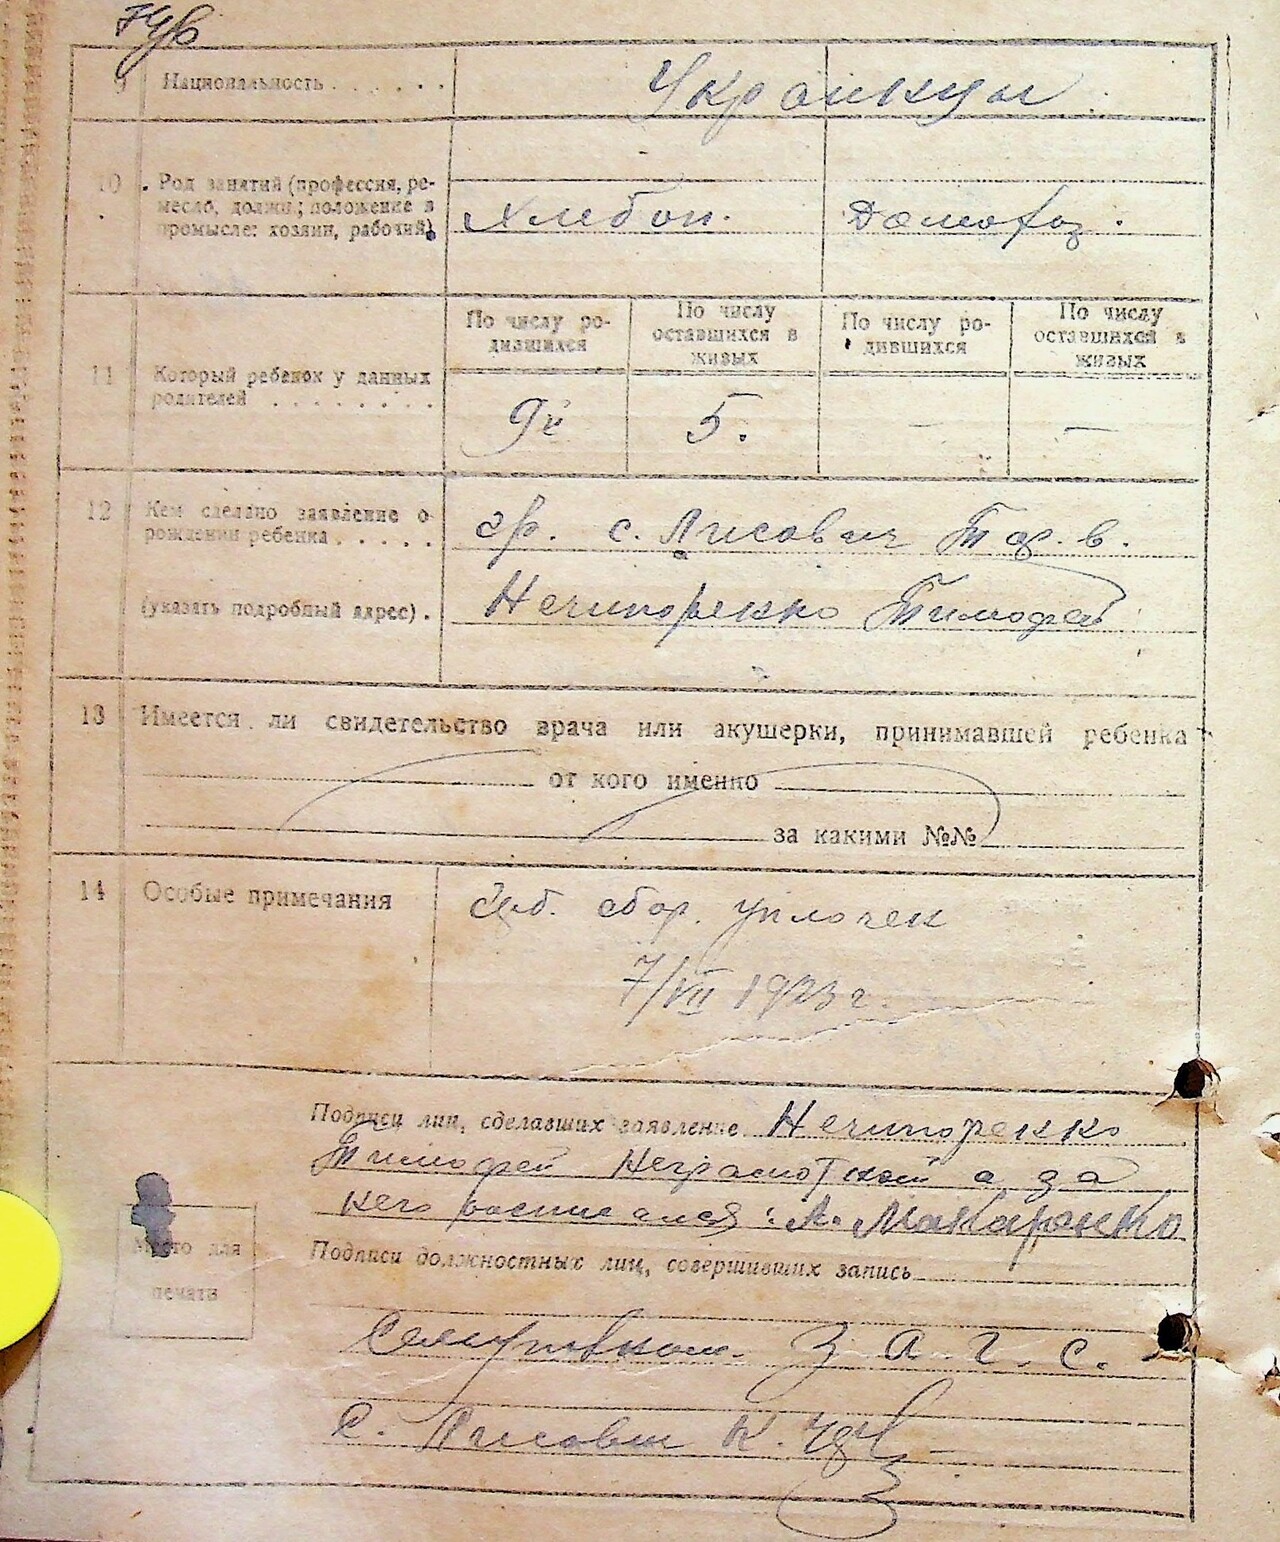 9 Национальность . . . . . . Украинцы
10 Род занятий (профессия, ре-
месло, должн.; положение в
промысле: хозяин, рабочий)
Хлебоп. Домохоз.
По числу ро-
дившихся
По числу
оставшихся в
живых
По числу ро-
дившихся
По числу
оставшихся в
живых
11 Который ребенок у данных
родителей . . . . . . . .
9й 5. — —
12 Кем сделано заявление о
рождении ребенка . . . . .
гр. с. Лисович Тар. в.
(указать подробный адрес) . Нечипоренко Тимофей
13 Имеется ли свидетельство врача или акушерки, принимавшей ребенка
от кого именно
за какими №№
14 Особые примечания
сбор. уплочен
7/VII 1923 г.
Подписи лиц, сделавших заявление Нечипоренко
Тимофей Неграмотной а за
него росписался: Л. Макаренко
Подписи должностных лиц, совершивших запись
Место для
печати
З А Г С.
с. Лисович